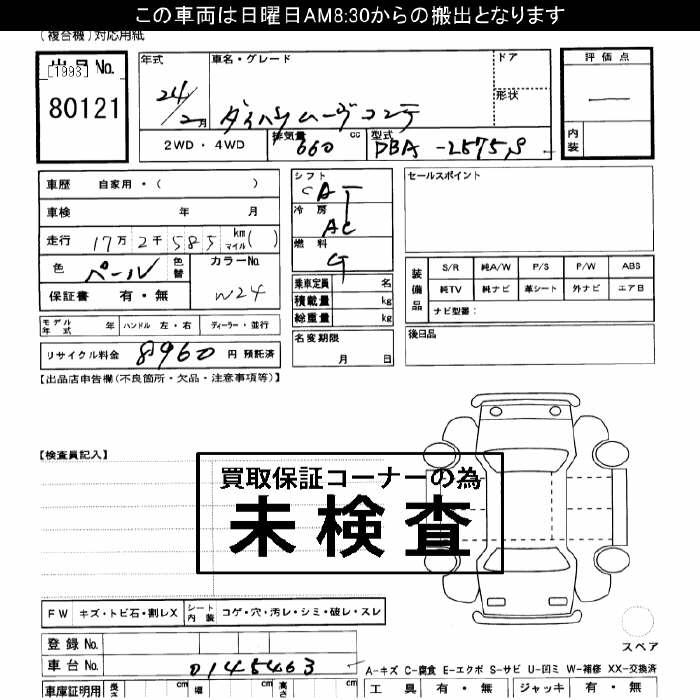 この車両は日曜日AM8:30からの搬出となります
(複合機)対応用紙
出品No.
[1993]
80121
年式
24/2月
車名・グレード
ダイハツムーヴコンテ
ドア
形状
評価点
内装
2WD・4WD
排気量 660 cc
型式 DBA-L575S
車歴 自家用・( )
車検 年 月
走行 17万2千585 km マイル( )
色 パール 色替
カラーNo. W24
保証書 有・無
モデル年式 年 ハンドル 左・右 ディーラー・並行
リサイクル料金 8960 円 預託済
シフト CAT
冷房 AC
燃料 G
乗車定員 名
積載量 kg
総重量 kg
名変期限
月 日
セールスポイント
装備品
S/R 純A/W P/S P/W ABS
純TV 純ナビ 革シート 外ナビ エアB
ナビ型番:
後日品
【出品店申告欄(不良箇所・欠品・注意事項等)】
【検査員記入】
買取保証コーナーの為
未検査
FW キズ・トビ石・割レX シート内装 コゲ・穴・汚レ・シミ・破レ・スレ
スペア
登録No.
車台No. 0145463
A-キズ C-腐食 E-エクボ S-サビ U-凹ミ W-補修 XX-交換済
車庫証明用 長さ cm 幅 cm 高さ cm
工具 有・無 ジャッキ 有・無